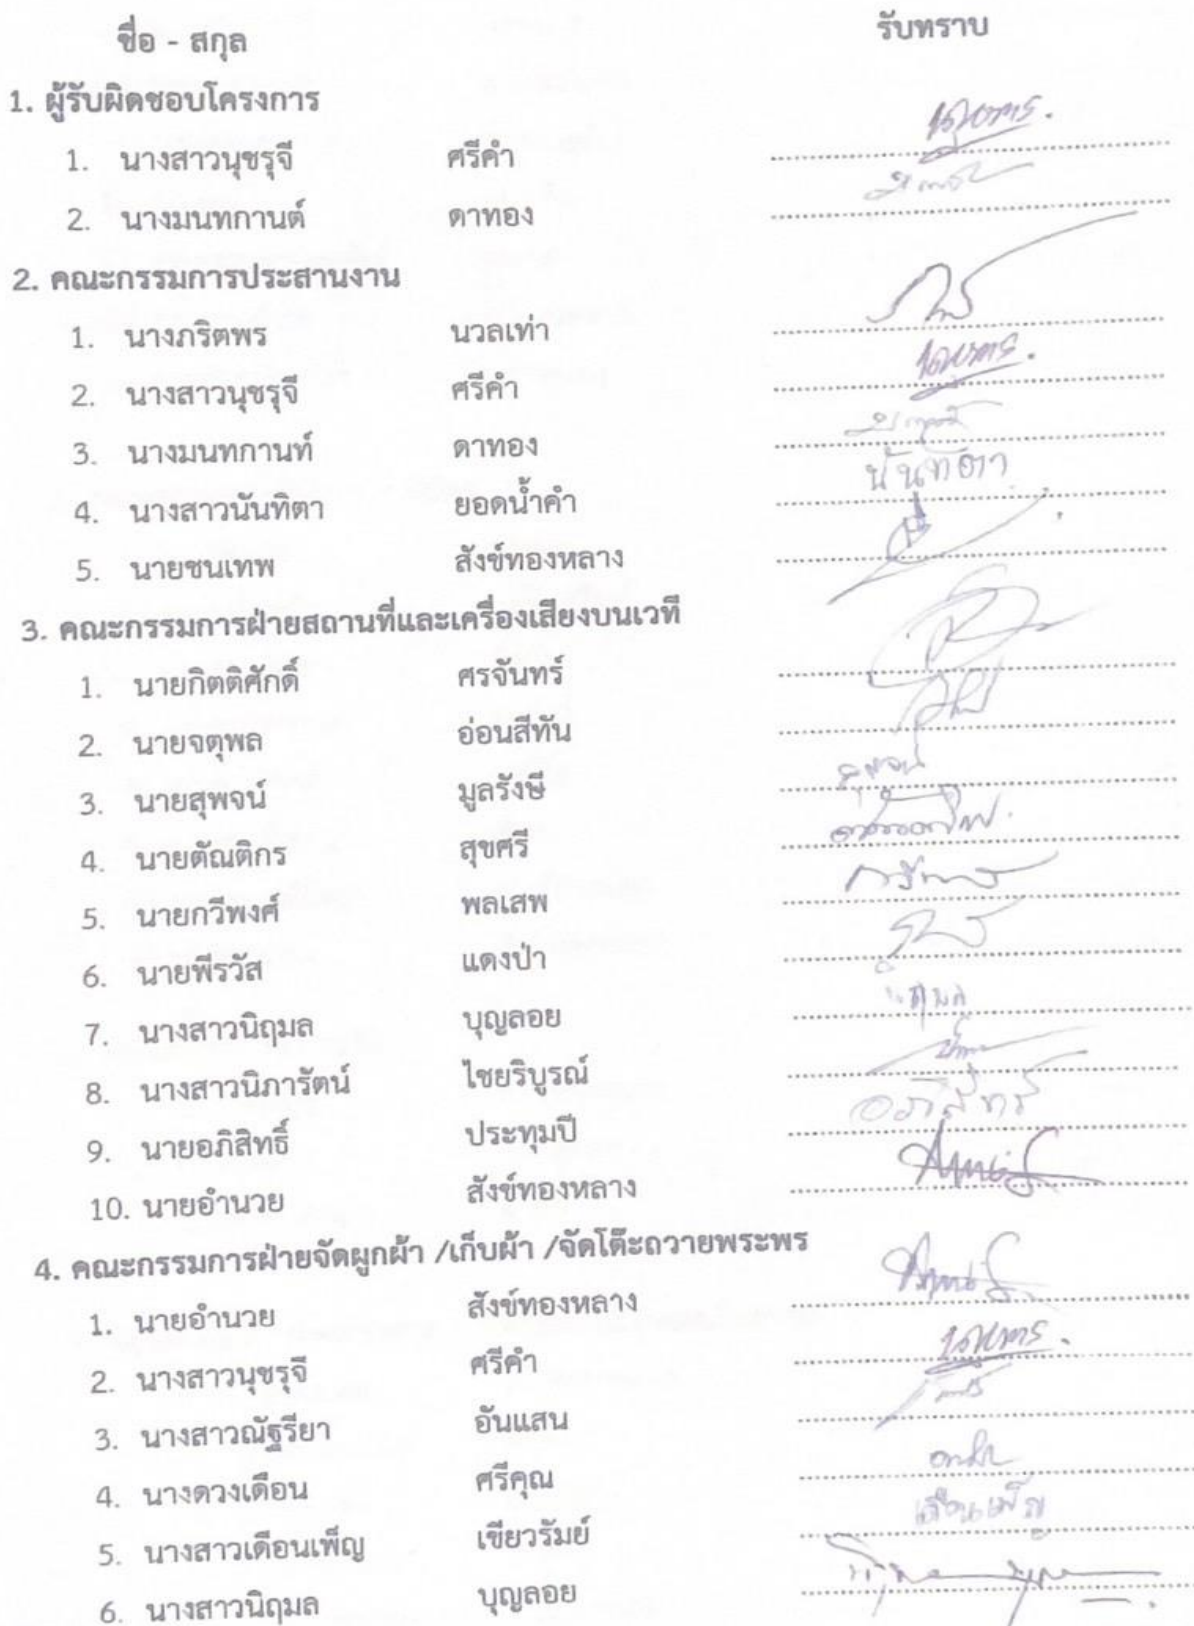 ชื่อ - สกุล รับทราบ
1. ผู้รับผิดชอบโครงการ
1. นางสาวนุชรุจี ศรีคำ
2. นางมนทกานต์ ดาทอง
2. คณะกรรมการประสานงาน
1. นางภริตพร นวลเท่า
2. นางสาวนุชรุจี ศรีคำ
3. นางมนทกานท์ ดาทอง
4. นางสาวนันทิตา ยอดน้ำคำ นันทิตา
5. นายชนเทพ สังข์ทองหลาง
3. คณะกรรมการฝ่ายสถานที่และเครื่องเสียงบนเวที
1. นายกิตติศักดิ์ ศรจันทร์
2. นายจตุพล อ่อนสีทัน
3. นายสุพจน์ มูลรังษี สุพจน์
4. นายตัณติกร สุขศรี
5. นายกวีพงศ์ พลเสพ
6. นายพีรวัส แดงป่า
7. นางสาวนิฤมล บุญลอย นิฤมล
8. นางสาวนิภารัตน์ ไชยริบูรณ์
9. นายอภิสิทธิ์ ประทุมปี
10. นายอำนวย สังข์ทองหลาง
4. คณะกรรมการฝ่ายจัดผูกผ้า /เก็บผ้า /จัดโต๊ะถวายพระพร
1. นายอำนวย สังข์ทองหลาง
2. นางสาวนุชรุจี ศรีคำ
3. นางสาวณัฐรียา อันแสน
4. นางดวงเดือน ศรีคุณ
5. นางสาวเดือนเพ็ญ เขียวรัมย์ เดือนเพ็ญ
6. นางสาวนิฤมล บุญลอย